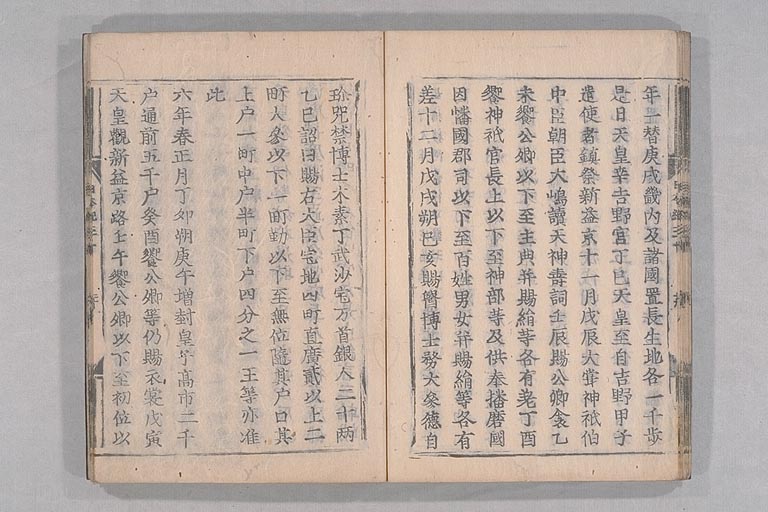 年一替庚戌畿内及諸國置長生地各一千歩
是日天皇幸吉野宮丁巳天皇至自吉野甲子
遣使者鎮祭新益京十一月戊辰大嘗神祇伯
中臣朝臣大嶋讀天神壽詞壬辰賜公卿衾乙
未饗公卿以下至主典并賜絹等各有差丁酉
饗神祇官長上以下至神部等及供奉播磨國
因幡國郡司以下至百姓男女并賜絹等各有
差十二月戊戌朔己亥賜醫博士務大參德自
珍咒禁博士木素丁武沙宅万首銀人二十兩
乙巳詔曰賜右大臣宅地四町直廣貳以上二
町大參以下一町勤以下至無位隨其户口其
上户一町中户半町下户四分之一王等亦准
此
六年春正月丁卯朔庚午增封皇子高市二千
户通前五千户癸酉饗公卿等仍賜衣裳戊寅
天皇觀新益京路壬午饗公卿以下至初位以